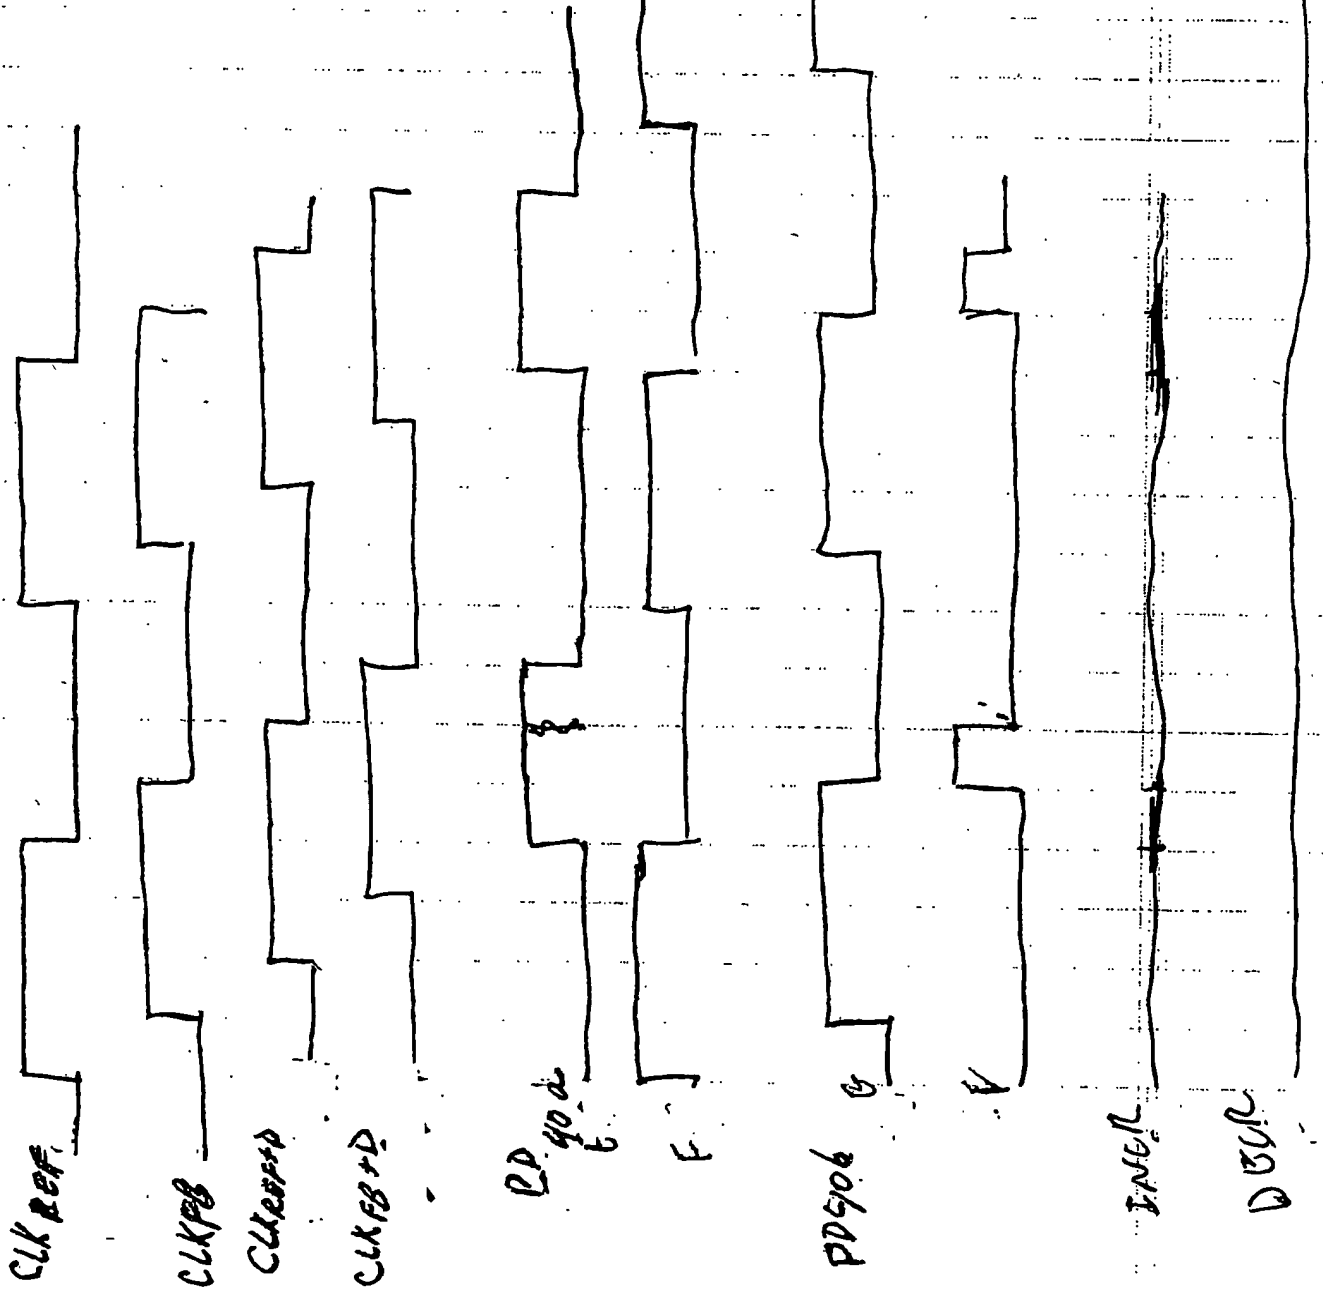 CLK REF
CLKFB
CLKREF+D
CLKFB+D
PD 90a
E
F
PD90b
INCR
DECR